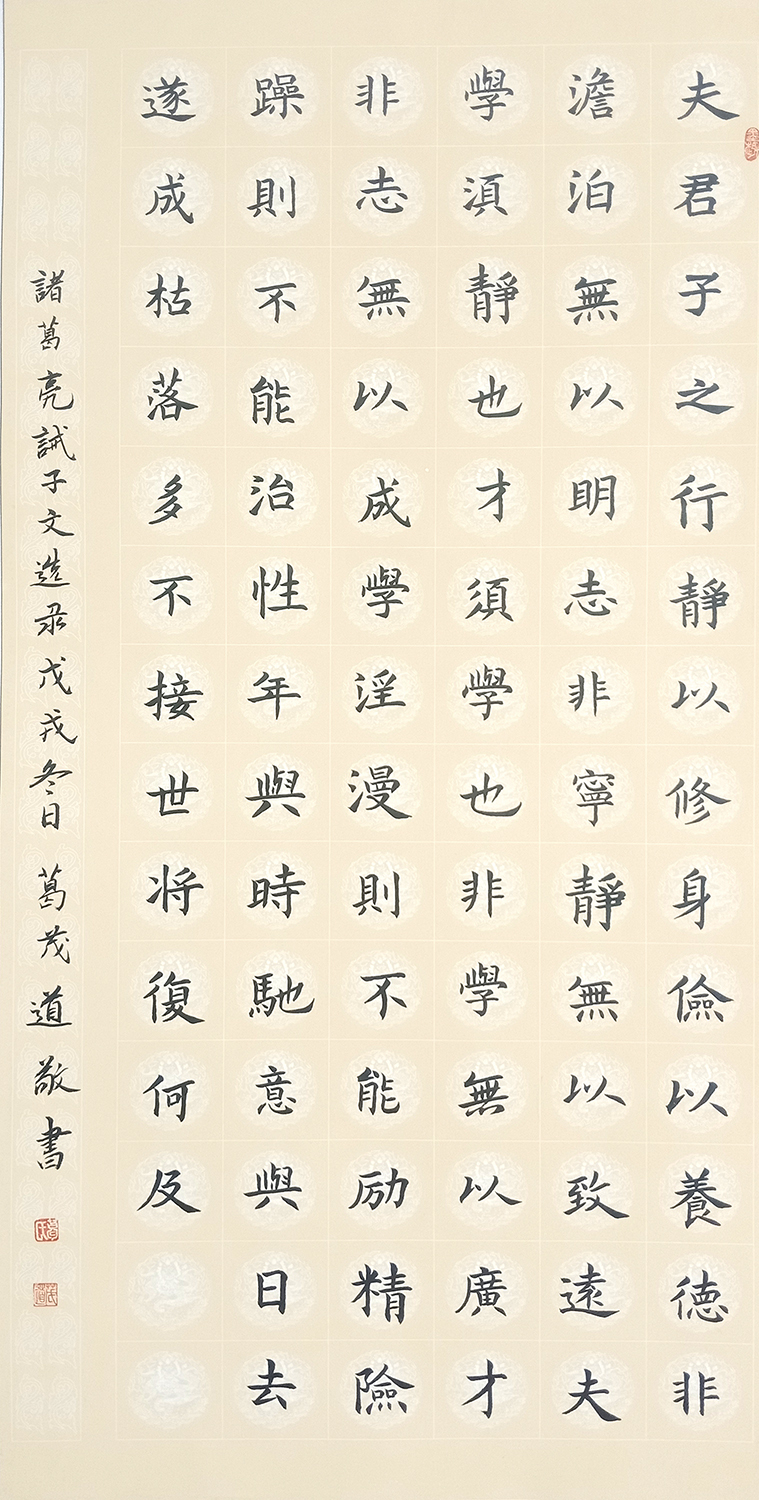 夫君子之行靜以修身儉以養德非
澹泊無以明志非寧靜無以致遠夫
學湏靜也才須學也非學無以廣才
非志無以成學淫漫則不能励精險
躁則不能治性年與時馳意與日去
遂成枯落多不接世将復何及
諸葛亮誡子文選录戊戌冬日 葛茂道敬書